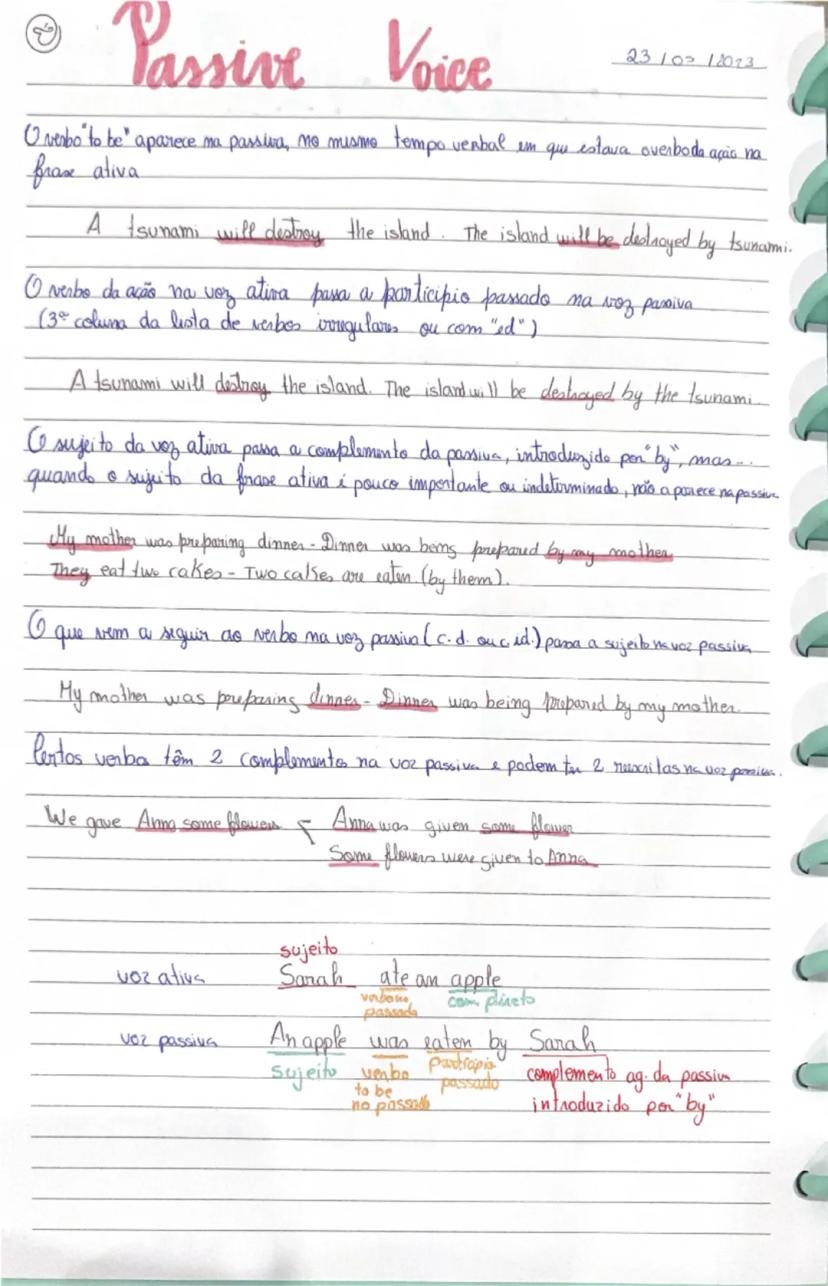 Passive Voice
23/03/2023
O verbo "to be" aparece na passiva, no mesmo tempo verbal em que estava o verbo da ação na
frase ativa
A tsunami will destroy the island. The island will be destroyed by tsunami.
O verbo da ação na voz ativa passa a particípio passado na voz passiva
(3ª coluna da lista de verbos irregulares ou com "ed")
A tsunami will destroy the island. The island will be destroyed by the tsunami
O sujeito da voz ativa passa a complemento da passiva, introduzido por "by", mas...
quando o sujeito da frase ativa é pouco importante ou indeterminado, não aparece na passiva
My mother was preparing dinner - Dinner was being prepared by my mother
They eat two cakes - Two cakes are eaten (by them).
O que vem a seguir ao verbo na voz passiva (c.d. ou c.id.) passa a sujeito na voz passiva
My mother was preparing dinner - Dinner was being prepared by my mother.
Certos verbo têm 2 complementos na voz passiva e podem ter 2 na voz passiva.
We gave Anna some flowers < Anna was given some flower
Some flowers were given to Anna
sujeito
voz ativa Sarah ate an apple
verbo no passado
com. direto
voz passiva An apple was eaten by Sarah
sujeito verbo particípio complemento ag. da passiva
to be passado introduzido por "by"
no passado